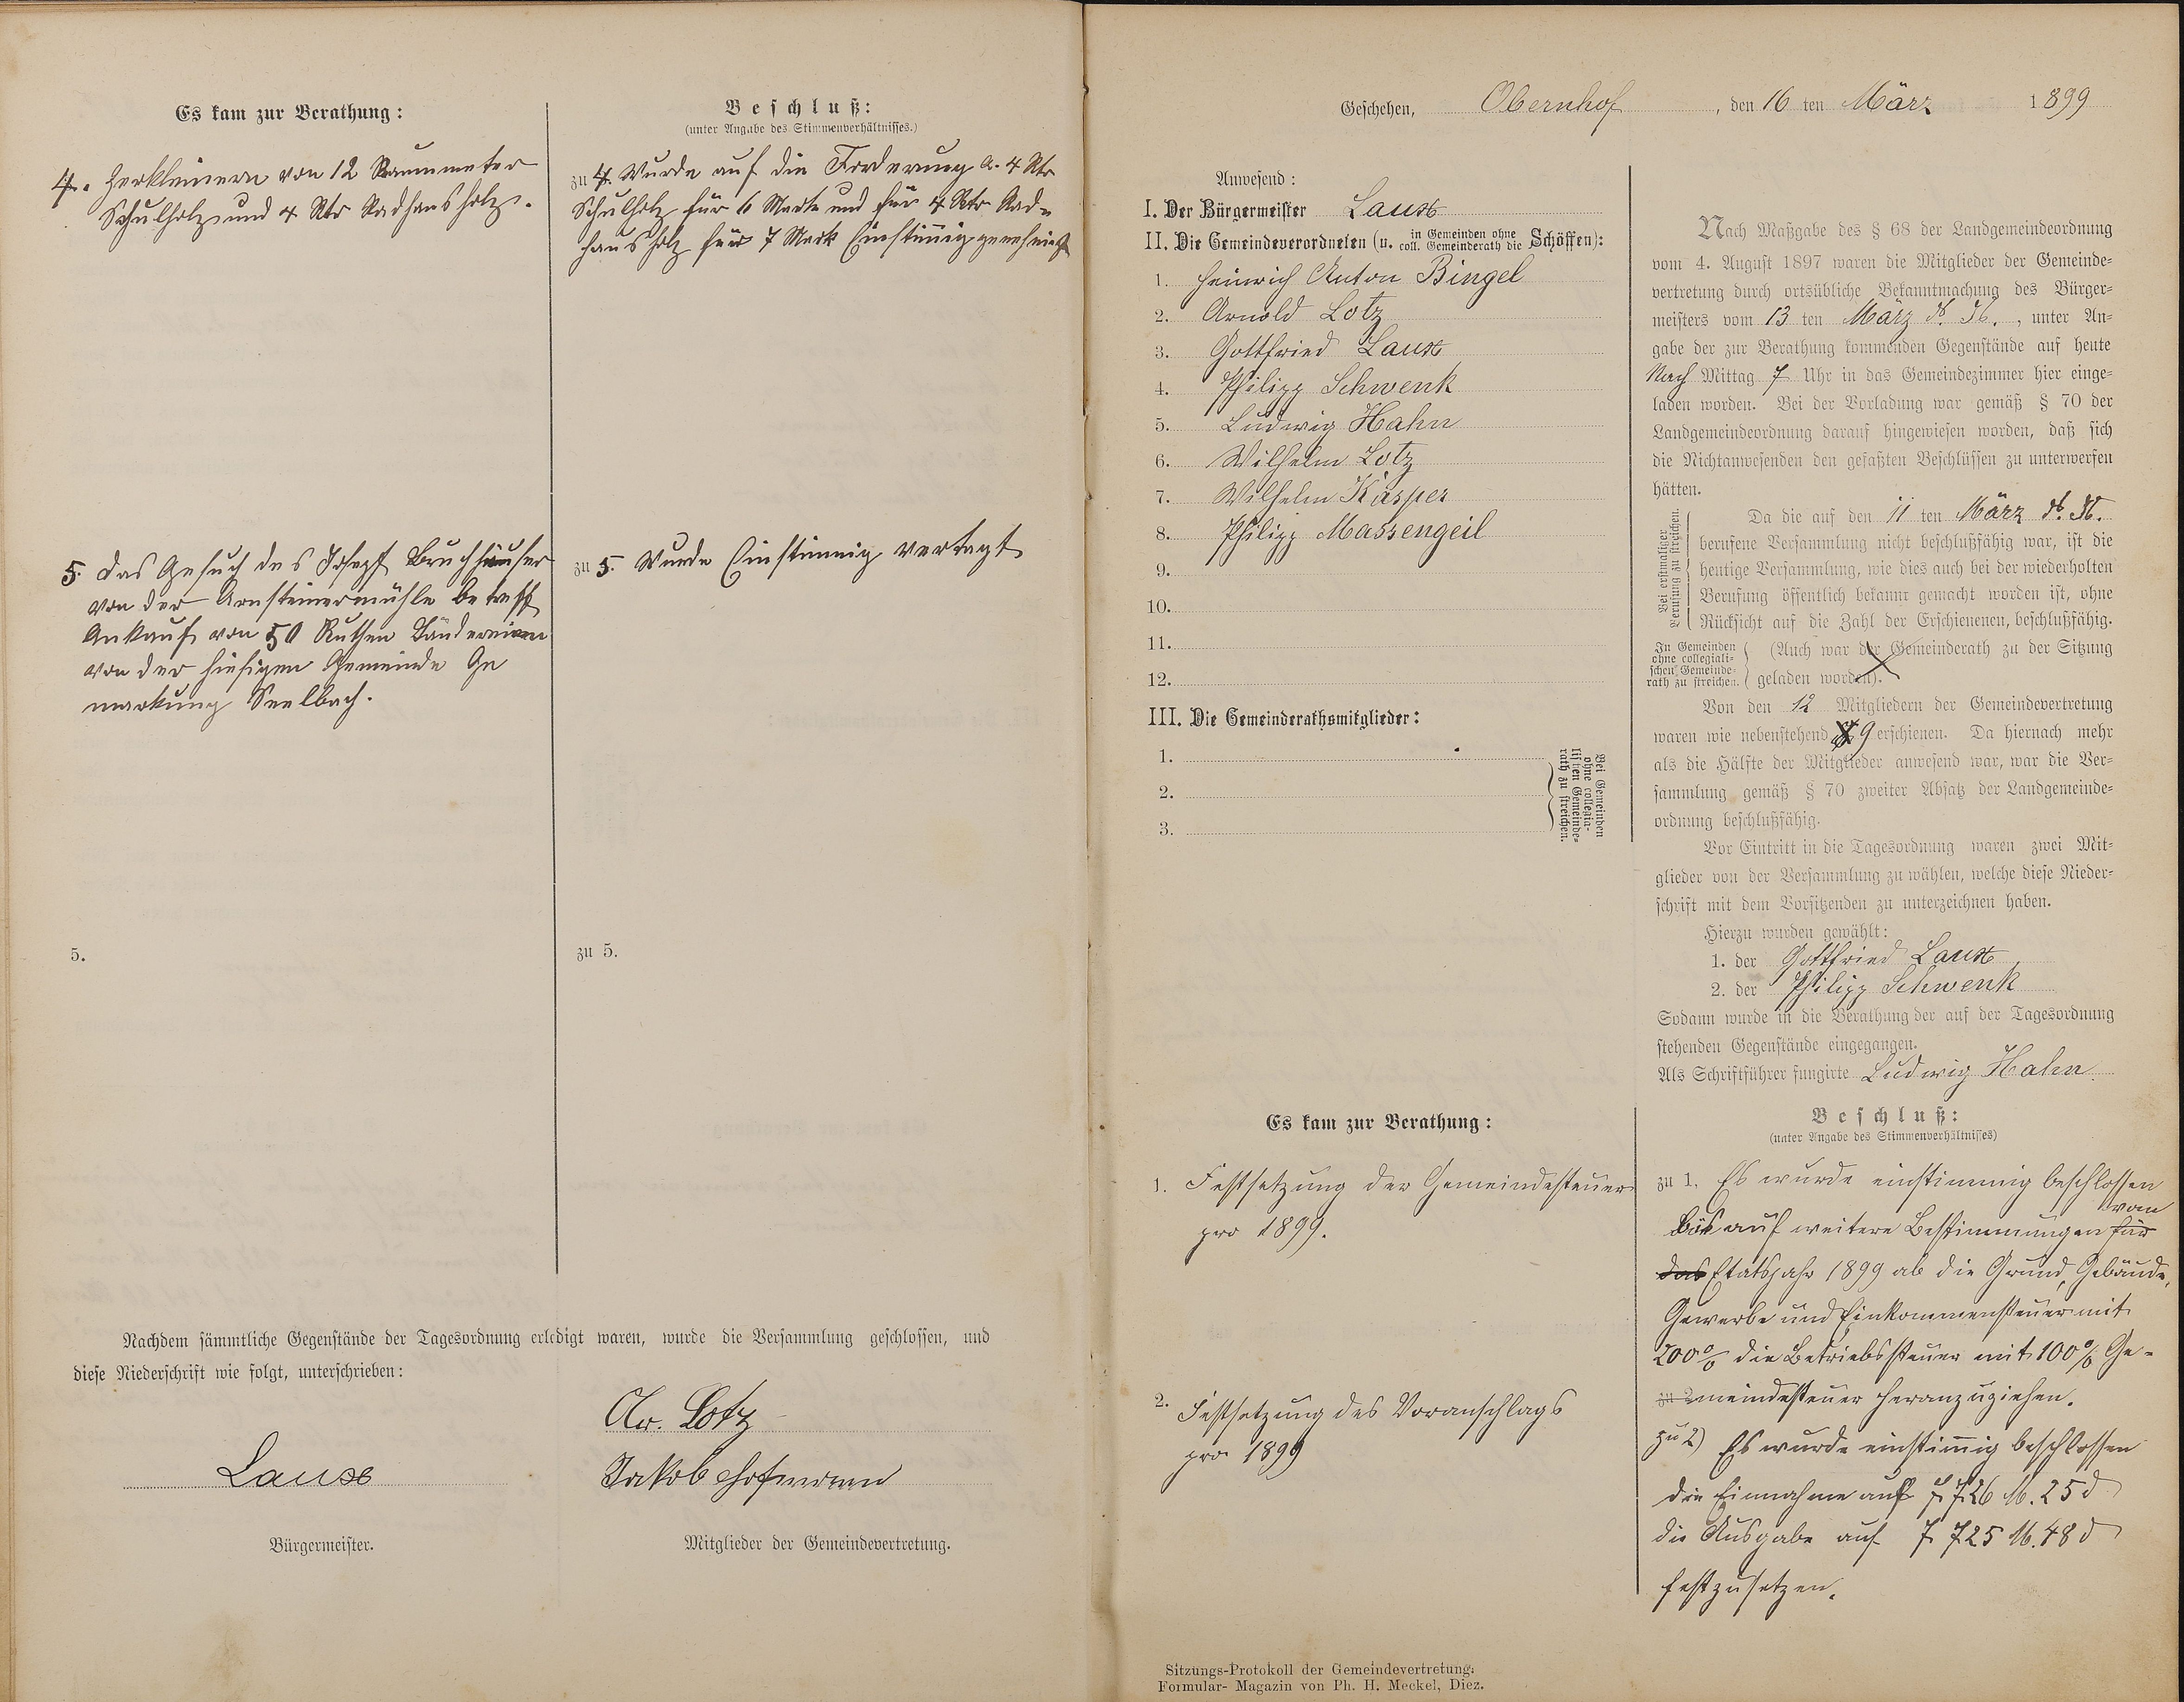 Es kam zur Berathung:
4. Zerkleinern von 12 Raummeter
Schulholz und 4 Rtr Radhausholz.
5. Das Gesuch des Joseph Bruchhäuser
von der Arnsteinermühle betreff
Ankauf von 50 Ruthen Ländereien
von der hiesigen Gemeinde Ge
markung Seelbach.
5.
Beschluß:
(unter Angabe des Stimmenverhältnisses.)
zu 4. Wurde auf die Forderung a. 4 Rtr
Schulholz für 6 Mark und für 4 Rtr Rad-
hausholz für 7 Mark Einstimig genehmigt
zu 5. Wurde Einstimmig vertagt
zu 5.
Nachdem sämmtliche Gegenstände der Tagesordnung erledigt waren, wurde die Versammlung geschlossen, und
diese Niederschrift wie folgt, unterschrieben:
Ar. Lotz
Laux
Jakob Hofmann
Bürgermeister.
Mitglieder der Gemeindevertretung.
Geschehen, Obernhof, den 16 ten März 1899
Anwesend:
I. Der Bürgermeister Laux
II. Die Gemeindeverordneten (u. in Gemeinden ohne coll. Gemeinderath die Schöffen):
1. Heinrich Anton Bingel
2. Arnold Lotz
3. Gottfried Laux
4. Philipp Schwenk
5. Ludwig Hahn
6. Wilhelm Lotz
7. Wilhelm Kasper
8. Philipp Massengeil
9.
10.
11.
12.
III. Die Gemeinderathsmitglieder:
1.
2.
3.
Bei Gemeinden
ohne collegia-
lischen Gemeinde-
rath zu streichen.
Nach Maßgabe des § 68 der Landgemeindeordnung
vom 4. August 1897 waren die Mitglieder der Gemeinde-
vertretung durch ortsübliche Bekanntmachung des Bürger-
meisters vom 13 ten März d. Js., unter An-
gabe der zur Berathung kommenden Gegenstände auf heute
Nach Mittag 7 Uhr in das Gemeindezimmer hier einge-
laden worden. Bei der Vorladung war gemäß § 70 der
Landgemeindeordnung darauf hingewiesen worden, daß sich
die Nichtanwesenden den gefaßten Beschlüssen zu unterwerfen
hätten.
Bei erstmaliger
Berufung zu streichen.
Da die auf den 11 ten März d. Js.
berufene Versammlung nicht beschlußfähig war, ist die
heutige Versammlung, wie dies auch bei der wiederholten
Berufung öffentlich bekannt gemacht worden ist, ohne
Rücksicht auf die Zahl der Erschienenen, beschlußfähig.
In Gemeinden
ohne collegiali-
schen Gemeinde-
rath zu streichen.
(Auch war der Gemeinderath zu der Sitzung
geladen worden).
Von den 12 Mitgliedern der Gemeindevertretung
waren wie nebenstehend 9 erschienen. Da hiernach mehr
als die Hälfte der Mitglieder anwesend war, war die Ver-
sammlung gemäß § 70 zweiter Absatz der Landgemeinde-
ordnung beschlußfähig.
Vor Eintritt in die Tagesordnung waren zwei Mit-
glieder von der Versammlung zu wählen, welche diese Nieder-
schrift mit dem Vorsitzenden zu unterzeichnen haben.
Hierzu wurden gewählt:
1. der Gottfried Laux
2. der Philipp Schwenk
Sodann wurde in die Berathung der auf der Tagesordnung
stehenden Gegenstände eingegangen.
Als Schriftführer fungirte Ludwig Hahn.
Es kam zur Berathung:
1. Festsetzung der Gemeindesteuer
pro 1899.
2. Festsetzung des Voranschlags
pro 1899
Beschluß:
(unter Angabe des Stimmenverhältnisses)
zu 1. Es wurde einstimmig beschlossen
bis auf weitere Bestimmungen für vom
das Etatsjahr 1899 ab die Grund, Gebäude,
Gewerbe und Einkommensteuer mit
200% die Betriebssteuer mit 100% Ge-
zu 2 meindesteuer heranzuziehen.
zu 2) Es wurde einstimig beschlossen
die Einnahme auf 7726 M. 25 d
die Ausgabe auf 7725 M. 48 d
festzusetzen.
Sitzungs-Protokoll der Gemeindevertretung.
Formular-Magazin von Ph. H. Meckel, Diez.